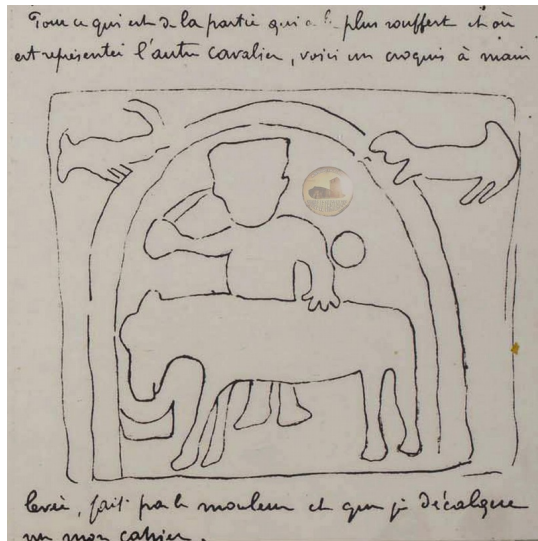 Pour ce qui est de la partie qui a le plus souffert et où
est représenté l'autre cavalier, voici un croquis à main
levée, fait par le mouleur et que je décalque
sur mon cahier.